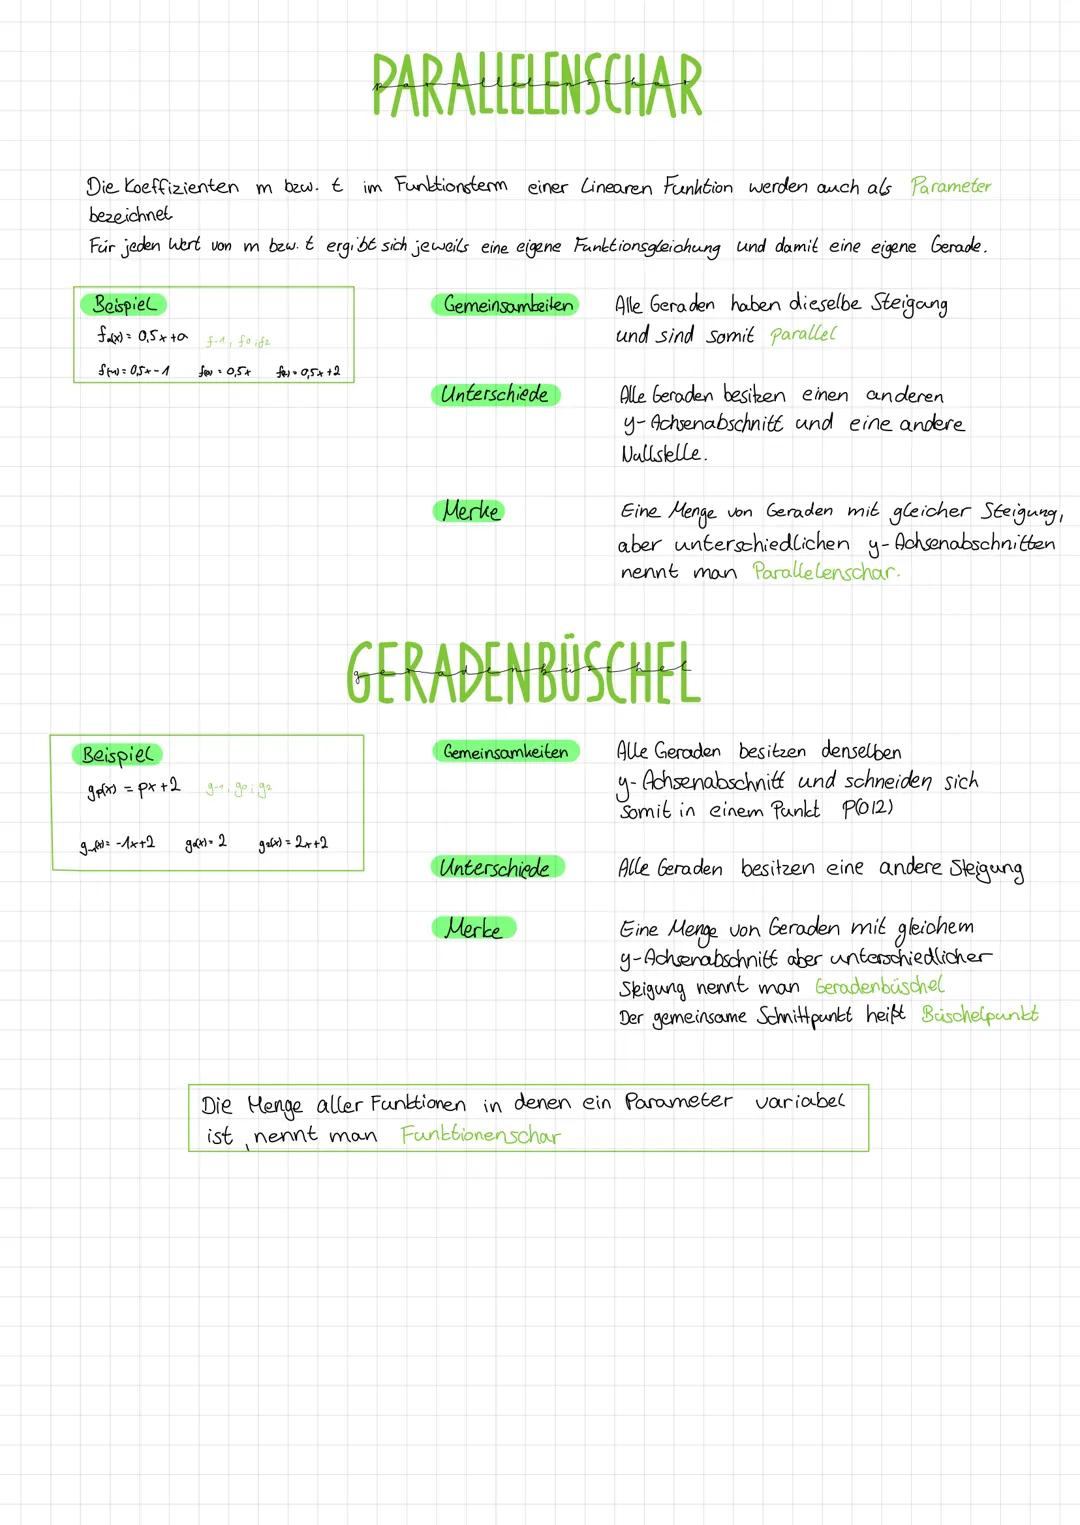 PARALLELENSCHAR
parallelenschar
Die Koeffizienten m bzw. t im Funktionsterm einer Linearen Funktion werden auch als Parameter
bezeichnet
Für jeden Wert von m bzw. t ergibt sich jeweils eine eigene Funktionsgleichung und damit eine eigene Gerade.
Beispiel
fₐ(x) = 0,5x+a f-1; f0; f2
f(-1) = 0,5x-1 f(0) = 0,5x f(2) = 0,5x+2
Gemeinsamkeiten
Alle Geraden haben dieselbe Steigung
und sind somit parallel
Unterschiede
Alle Geraden besitzen einen anderen
y-Achsenabschnitt und eine andere
Nullstelle.
Merke
Eine Menge von Geraden mit gleicher Steigung,
aber unterschiedlichen y-Achsenabschnitten
nennt man Parallelenschar.
GERADENBÜSCHEL
geradenbüschel
Beispiel
gp(x) = px+2 g-1; g0; g2
g-1(x) = -1x+2 g0(x) = 2 g2(x) = 2x+2
Gemeinsamkeiten
Alle Geraden besitzen denselben
y-Achsenabschnitt und schneiden sich
Somit in einem Punkt P(0|2)
Unterschiede
Alle Geraden besitzen eine andere Steigung
Merke
Eine Menge von Geraden mit gleichem
y-Achsenabschnitt aber unterschiedlicher
Steigung nennt man Geradenbüschel
Der gemeinsame Schnittpunkt heißt Büschelpunkt
Die Menge aller Funktionen in denen ein Parameter variabel
ist, nennt man Funktionenschar